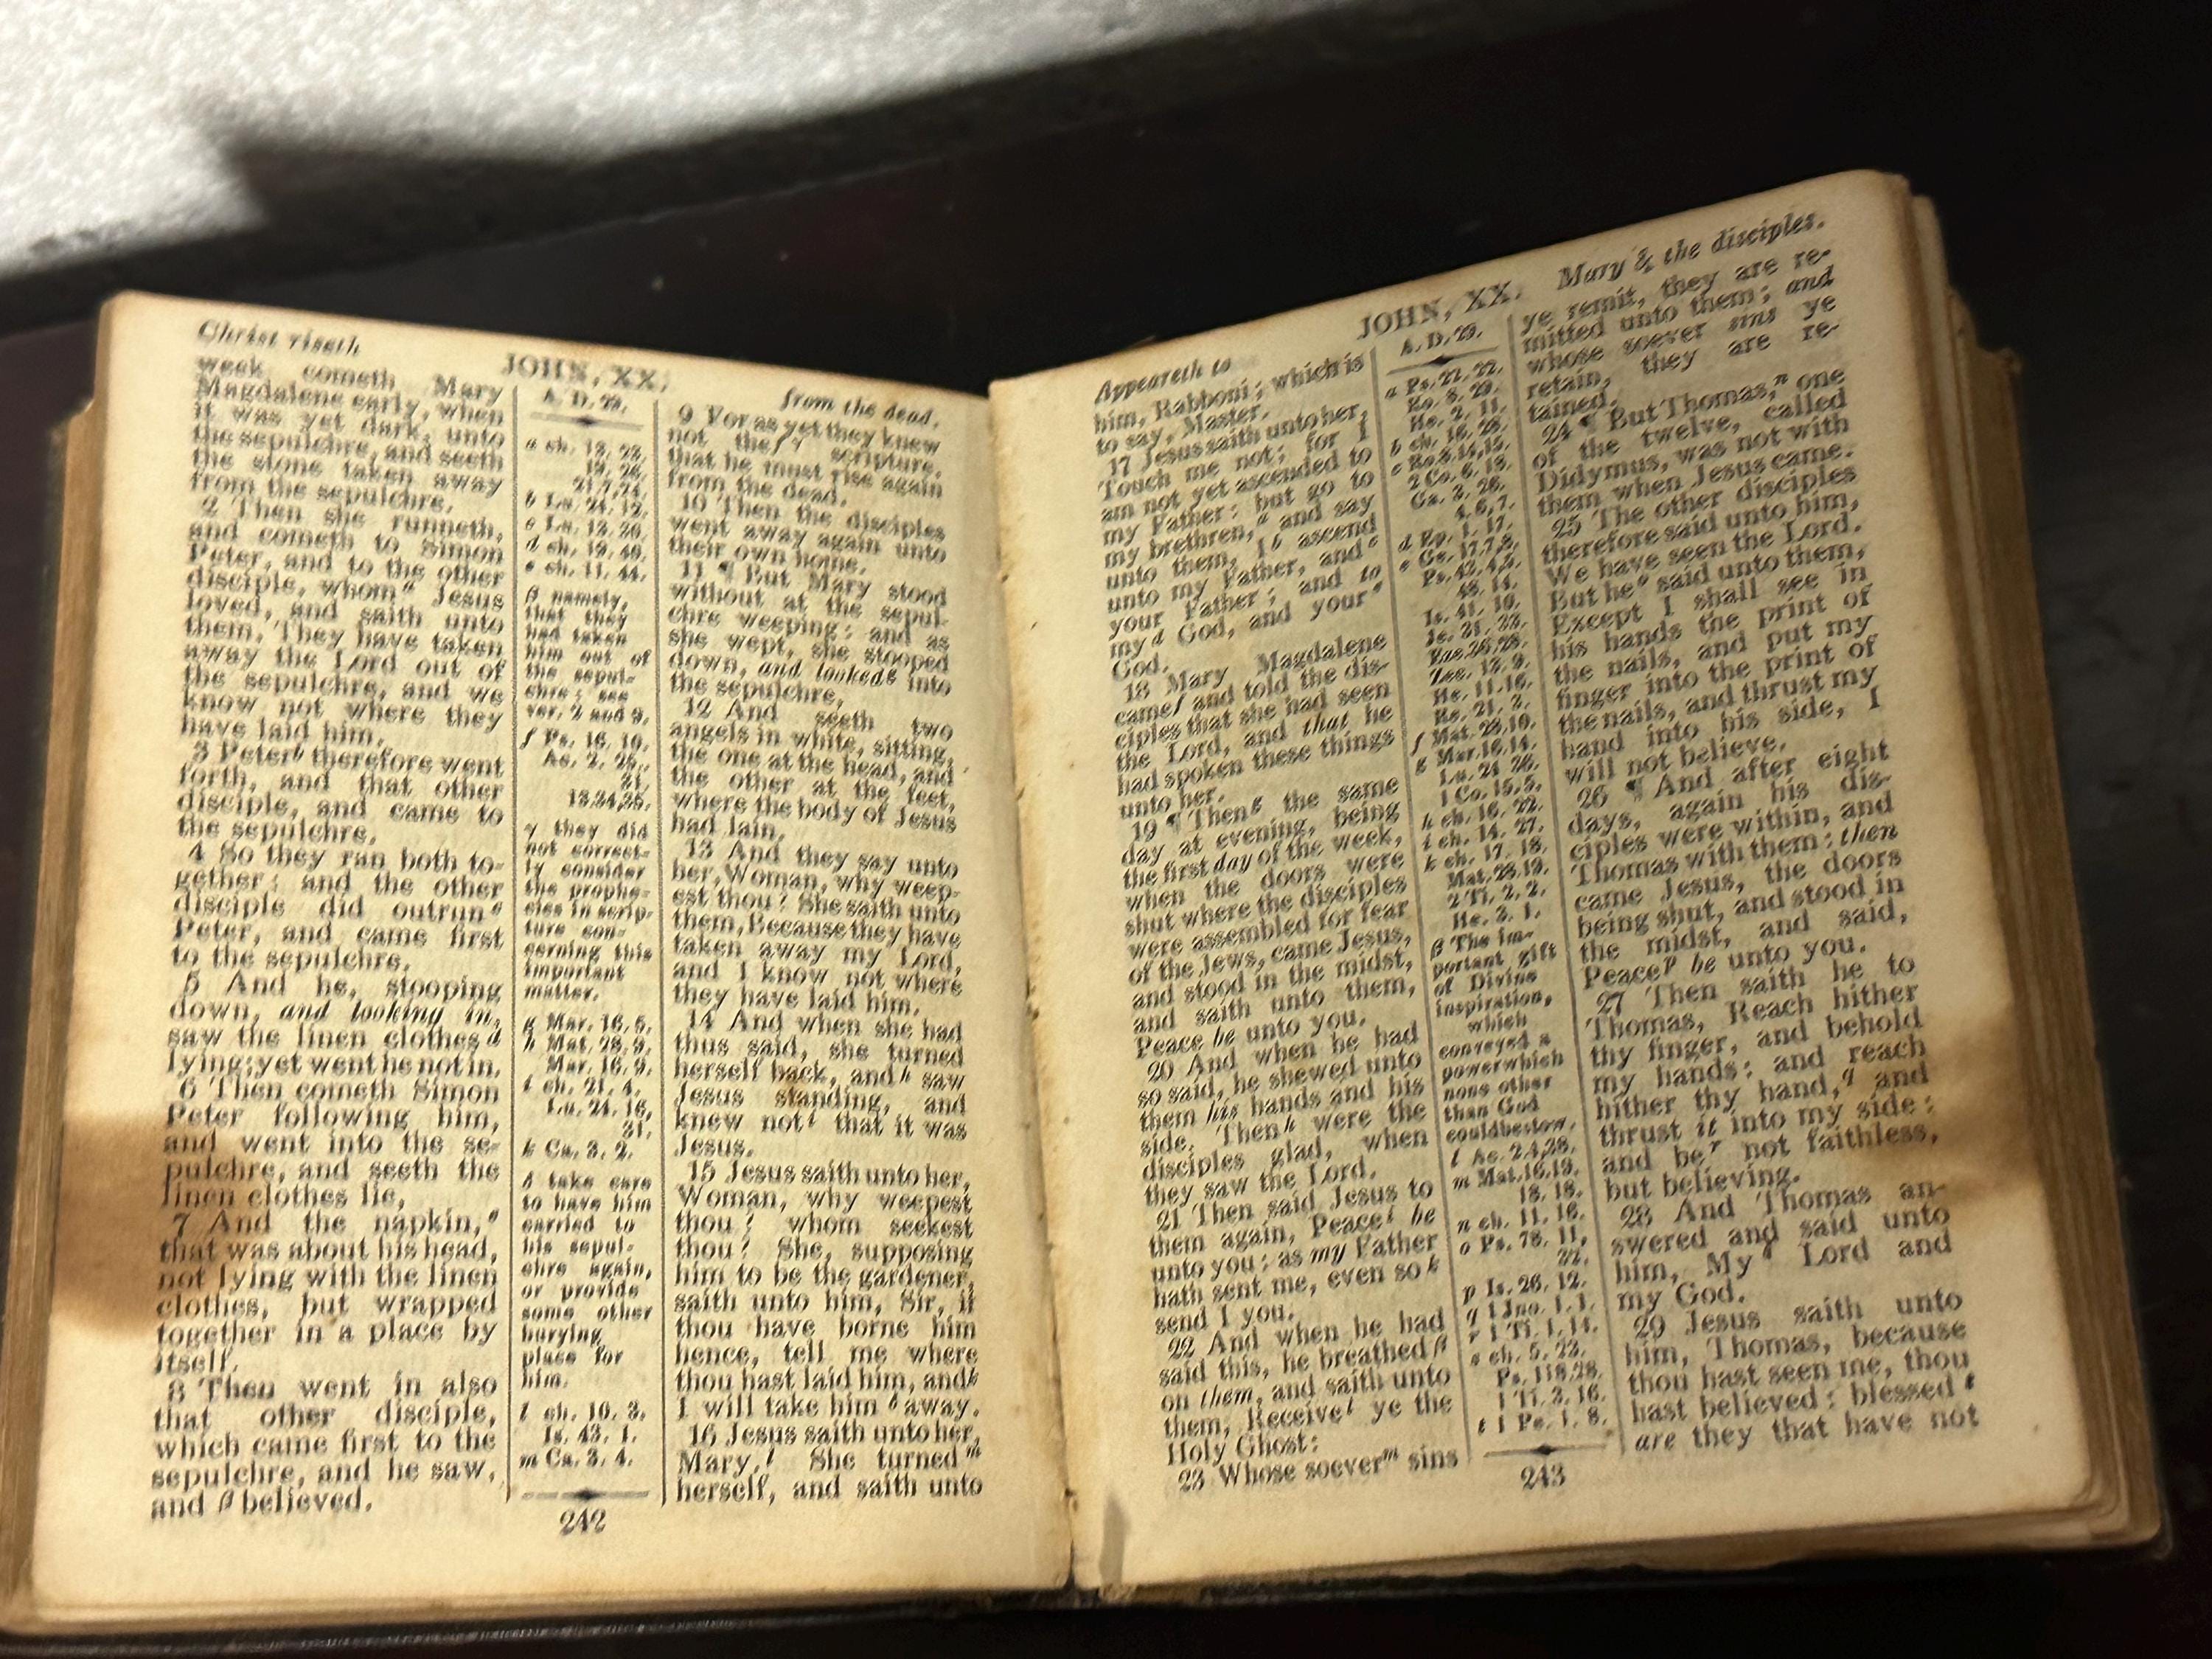 Christ riseth
JOHN, XX.
from the dead.
week cometh Mary
Magdalene early, when
it was yet dark, unto
the sepulchre, and seeth
the stone taken away
from the sepulchre.
2 Then she runneth,
and cometh to Simon
Peter, and to the other
disciple, whom a Jesus
loved, and saith unto
them, They have taken
away the Lord out of
the sepulchre, and we
know not where they
have laid him.
3 Peter b therefore went
forth, and that other
disciple, and came to
the sepulchre.
4 So they ran both to-
gether: and the other
disciple did outrun c
Peter, and came first
to the sepulchre.
5 And he, stooping
down, and looking in,
saw the linen clothes d
lying; yet went he not in.
6 Then cometh Simon
Peter following him,
and went into the se-
pulchre, and seeth the
linen clothes lie,
7 And the napkin, e
that was about his head,
not lying with the linen
clothes, but wrapped
together in a place by
itself.
8 Then went in also
that other disciple,
which came first to the
sepulchre, and he saw,
and β believed.
A. D. 29.
a ch. 13. 23.
19. 26.
21. 7, 24.
b Lu. 24. 12.
c Lu. 13. 30.
d ch. 19. 40.
e ch. 11. 44.
β namely,
that they
had taken
him out of
the sepul-
chre: see
ver. 2 and 9.
f Ps. 16. 10.
Ac. 2. 25..
31.
13.34,35.
γ they did
not correct-
ly consider
the prophe-
cies in scrip-
ture con-
cerning this
important
matter.
g Mar. 16. 5.
h Mat. 28. 9.
Mar. 16. 9.
i ch. 21. 4.
Lu. 24. 16,
31.
k Ca. 3. 2.
δ take care
to have him
carried to
his sepul-
chre again,
or provide
some other
burying
place for
him.
l ch. 10. 3.
Is. 43. 1.
m Ca. 3. 4.
242
9 For as yet they knew
not the f γ scripture,
that he must rise again
from the dead.
10 Then the disciples
went away again unto
their own home.
11 ¶ But Mary stood
without at the sepul-
chre weeping: and as
she wept, she stooped
down, and looked g into
the sepulchre,
12 And seeth two
angels in white, sitting,
the one at the head, and
the other at the feet,
where the body of Jesus
had lain.
13 And they say unto
her, Woman, why weep-
est thou? She saith unto
them, Because they have
taken away my Lord,
and I know not where
they have laid him.
14 And when she had
thus said, she turned
herself back, and h saw
Jesus standing, and
knew not i that it was
Jesus.
15 Jesus saith unto her,
Woman, why weepest
thou? whom seekest
thou? She, supposing
him to be the gardener,
saith unto him, Sir, if
thou have borne him
hence, tell me where
thou hast laid him, and k
I will take him δ away.
16 Jesus saith unto her,
Mary, l She turned m
herself, and saith unto
Appeareth to
JOHN, XX.
Mary & the disciples.
him, Rabboni; which is
to say, Master.
17 Jesus saith unto her,
Touch me not; for I
am not yet ascended to
my Father: but go to
my brethren, a and say
unto them, I b ascend
unto my Father, and c
your Father; and to
my d God, and your e
God.
18 Mary Magdalene
came f and told the dis-
ciples that she had seen
the Lord, and that he
had spoken these things
unto her.
19 ¶ Then g the same
day at evening, being
the first day of the week,
when the doors were
shut where the disciples
were assembled for fear
of the Jews, came Jesus,
and stood in the midst,
and saith unto them,
Peace be unto you.
20 And when he had
so said, he shewed unto
them his hands and his
side. Then h were the
disciples glad, when
they saw the Lord.
21 Then said Jesus to
them again, Peace i be
unto you: as my Father
hath sent me, even so k
send I you.
22 And when he had
said this, he breathed β
on them, and saith unto
them, Receive l ye the
Holy Ghost:
23 Whose soever m sins
A. D. 29.
a Ps. 22. 22.
Ro. 8. 29.
He. 2. 11.
b ch. 16. 28.
c Ro.8.14,15.
2 Co. 6. 18.
Ga. 3. 26.
4. 6, 7.
d Ep. 1. 17.
e Ge. 17.7,8.
Ps. 43. 4,5.
48. 14.
Is. 41. 10.
Je. 31. 33.
Eze.36.28.
Zec. 13. 9.
He. 11.16.
Re. 21. 3.
f Mat. 28.10.
g Mar.16.14.
Lu. 24. 36.
1 Co. 15.5.
h ch. 16. 22.
i ch. 14. 27.
k ch. 17. 18.
Mat.28.19.
2 Ti. 2. 2.
He. 3. 1.
β The im-
portant gift
of Divine
inspiration,
which
conveyed a
power which
none other
than God
could bestow.
l Ac. 2.4,38.
m Mat.16.19.
18. 18.
n ch. 11. 16.
o Ps. 78. 11,
32.
p Is. 26. 12.
q 1 Jno. 1. 1.
r 1 Ti. 1. 14.
s ch. 5. 23.
Ps. 118.28.
1 Ti. 3. 16.
t 1 Pe. 1. 8.
243
ye remit, they are re-
mitted unto them; and
whose soever sins ye
retain, they are re-
tained.
24 ¶ But Thomas, n one
of the twelve, called
Didymus, was not with
them when Jesus came.
25 The other disciples
therefore said unto him,
We have seen the Lord.
But he o said unto them,
Except I shall see in
his hands the print of
the nails, and put my
finger into the print of
the nails, and thrust my
hand into his side, I
will not believe.
26 ¶ And after eight
days, again his dis-
ciples were within, and
Thomas with them: then
came Jesus, the doors
being shut, and stood in
the midst, and said,
Peace p be unto you.
27 Then saith he to
Thomas, Reach hither
thy finger, and behold
my hands; and reach
hither thy hand, q and
thrust it into my side:
and be r not faithless,
but believing.
28 And Thomas an-
swered and said unto
him, My s Lord and
my God.
29 Jesus saith unto
him, Thomas, because
thou hast seen me, thou
hast believed: blessed t
are they that have not